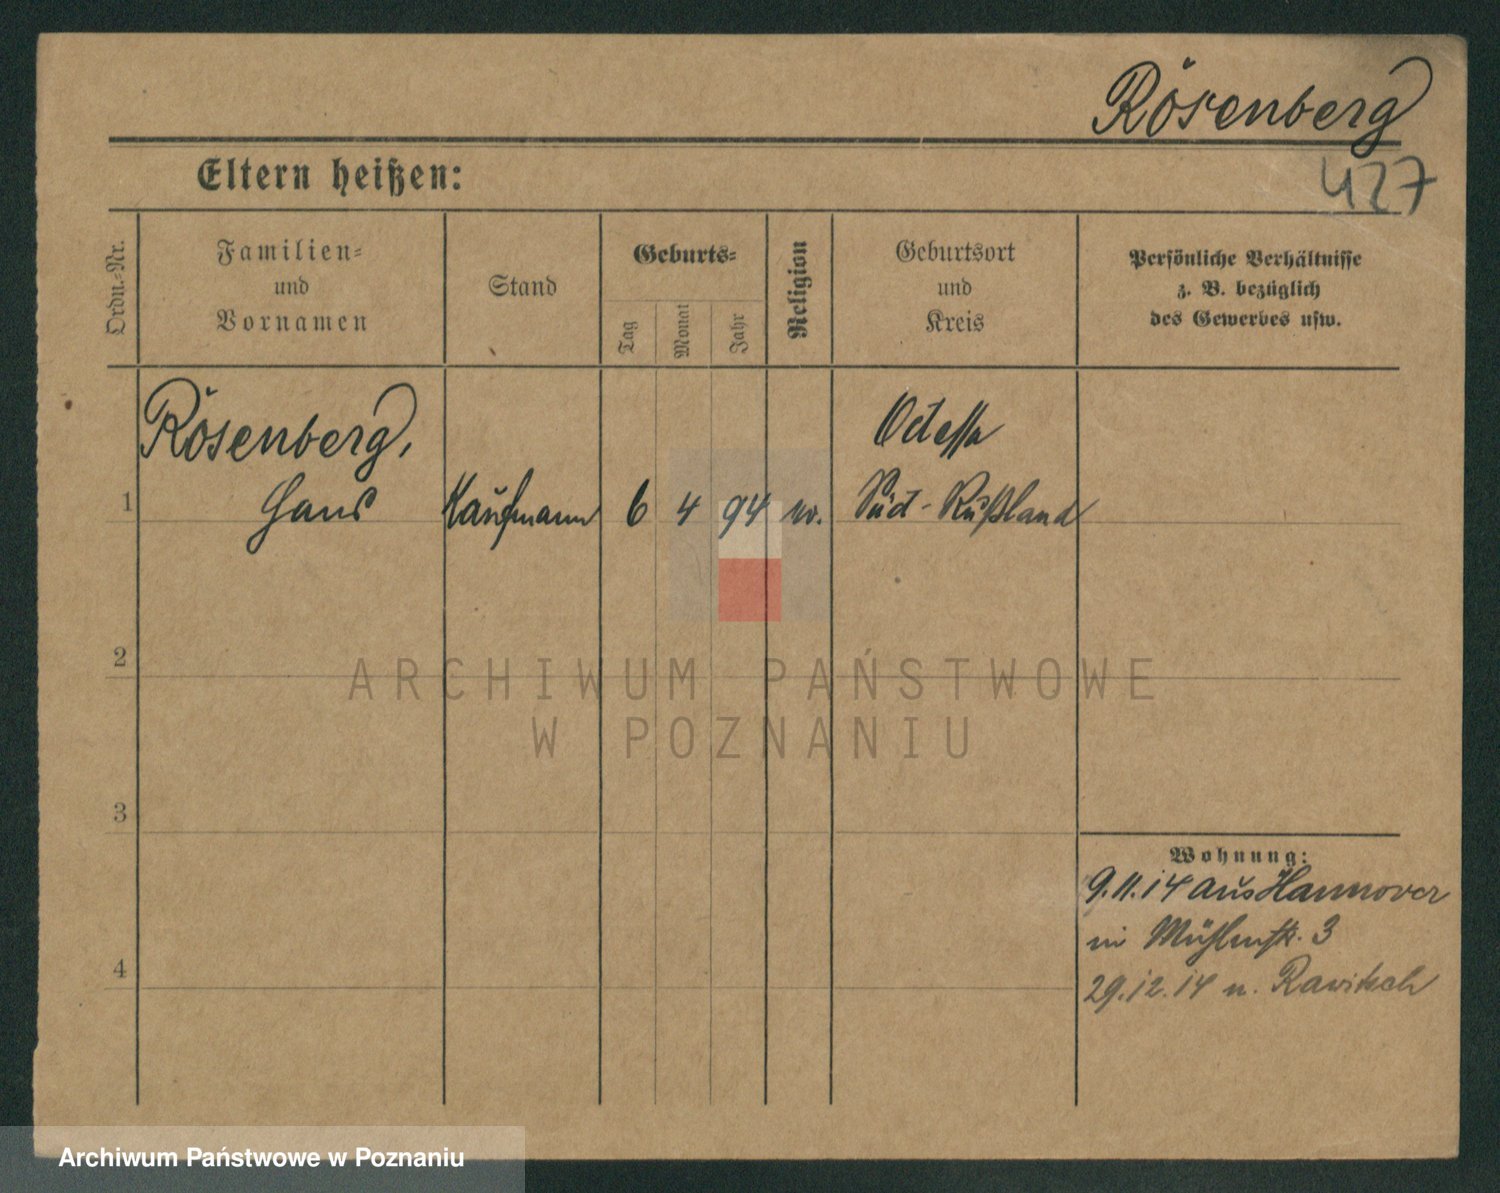 Rosenberg
427
Eltern heißen:
Ordn.-Nr.
Familien-
und
Vornamen
Stand
Geburts-
Tag
Monat
Jahr
Religion
Geburtsort
und
Kreis
Persönliche Verhältnisse
z. B. bezüglich
des Gewerbes usw.
Rosenberg,
Odessa
1 Hans Kaufmann 6 4 94 Süd-Rußland
2
3
4
Wohnung:
9.11.14 aus Hannover
in Mühlenstr. 3
29.12.14 n. Rawitsch
ARCHIWUM PAŃSTWOWE
W POZNANIU
Archiwum Państwowe w Poznaniu